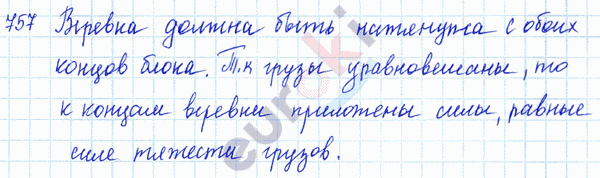 757 Веревка должна быть натянута с обоих
концов блока. Т.к грузы уравновешаны, то
к концам веревки приложены силы, равные
силе тяжести грузов.
euroki